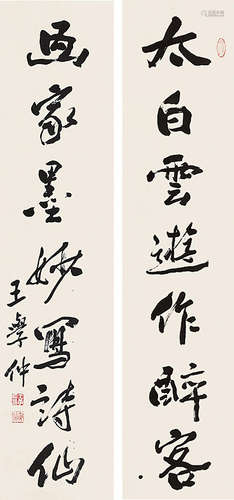 太白雲遊作醉客
画家墨妙寫詩仙
王學仲